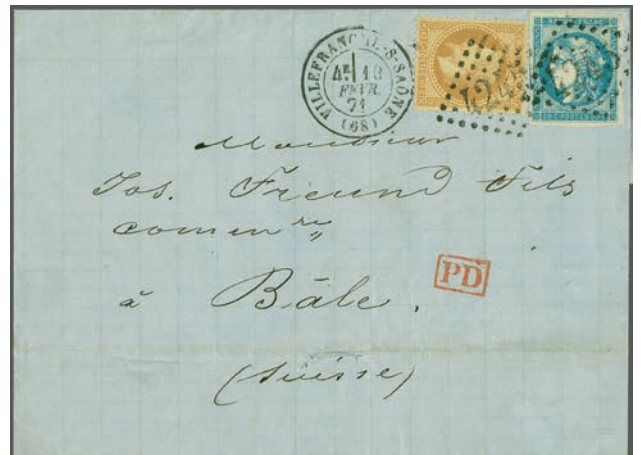 VILLEFRANCHE-S-SAÔNE
4E 18
FEVR.
71
(68)
4244
Monsieur
Jos. Freund Fils
commre
PD
à Bâle.
(Suisse)